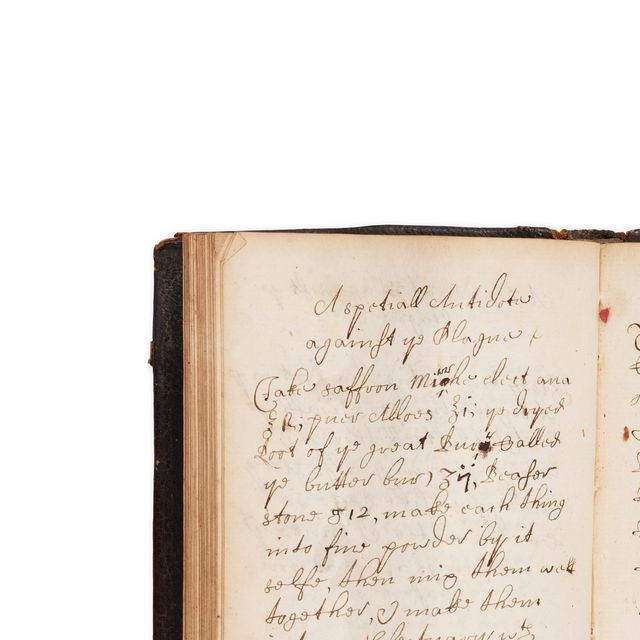 A spetiall Antidote
against ye Plague
Take saffron elect ana
puer Alloes ℥i; ye dryed
Root of ye great Burr Called
ye butter bur) ℥ij, Beaser
stone 12, make each thing
into fine powder by it
selfe, then mix them well
together, & make them